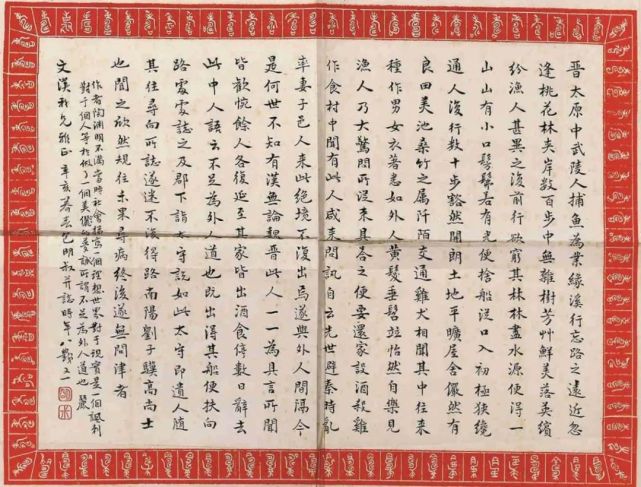 晉太原中武陵人捕魚為業緣溪行忘路之遠近忽
逢桃花林夾岸數百步中無雜樹芳艸鮮美落英繽
紛漁人甚異之復前行欲窮其林林盡水源便浮一
山山有小口髣髴若有光便捨船從口入初極狹纔
通人復行數十步豁然開朗土地平曠屋舍儼然有
良田美池桑竹之屬阡陌交通雞犬相聞其中往來
種作男女衣著悉如外人黃髮垂髫竝怡然自樂見
漁人乃大驚問所從來具答之便要還家設酒殺雞
作食村中聞有此人咸來問訊自云先世避秦時亂
率妻子邑人來此絕境不復出焉遂與外人間隔今
是何世不知有漢無論魏晉此人一一為具言所聞
皆歎惋餘人各復延至其家皆出酒食停數日辭去
此中人語云不足為外人道也既出得其船便扶向
路處處誌之及郡下詣太守說如此太守即遣人隨
其往尋向所誌遂迷不復得路南陽劉子驥高尚士
也聞之欣然規往未果尋病終後遂無問津者
作者陶淵明不滿當時社會描寫個理想世界對于現實是一個諷刺
對于個人等於做了個美儷夢誠所謂不足為外人道也
文漢我兄雅正 辛亥暮春包明叔并誌時年八